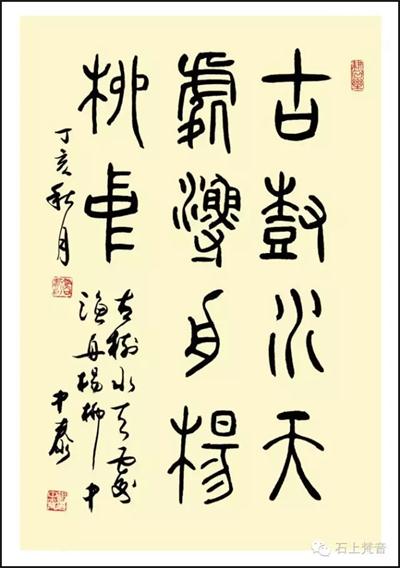 古樹水天
處漁舟楊
柳中
丁亥秋月
古樹水天處
漁舟楊柳中
中泰
石上梵音